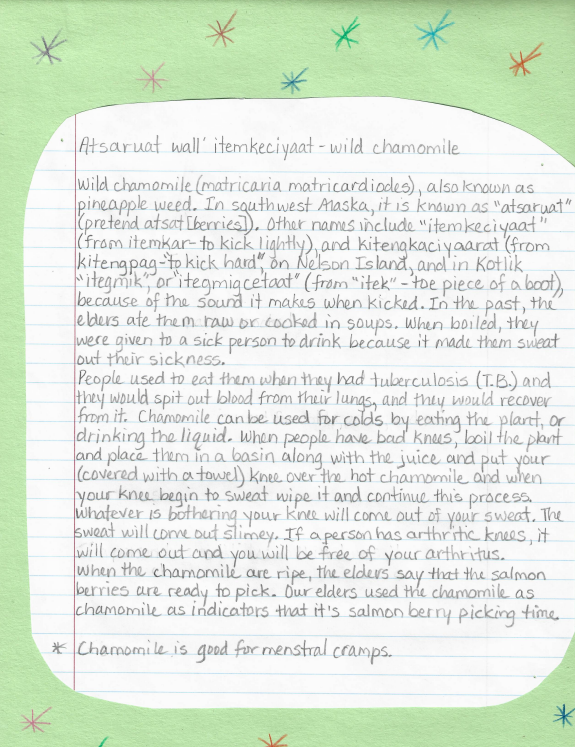 Atsaruat wall' itemkeciyaat - wild chamomile
Wild chamomile (matricaria matricardiodes), also known as
pineapple weed. In southwest Alaska, it is known as "atsaruat"
(pretend atsat [berries]). Other names include "itemkeciyaat"
(from itemkar- to kick lightly), and kitengkaciyaarat (from
kitengpag- "to kick hard", on Nelson Island, and in Kotlik
"itegmik", or "itegmigcetaat" (from "itek" - toe piece of a boot),
because of the sound it makes when kicked. In the past, the
elders ate them raw or cooked in soups. When boiled, they
were given to a sick person to drink because it made them sweat
out their sickness.
People used to eat them when they had tuberculosis (T.B.) and
they would spit out blood from their lungs, and they would recover
from it. Chamomile can be used for colds by eating the plant, or
drinking the liquid. When people have bad knees, boil the plant
and place them in a basin along with the juice and put your
(covered with a towel) knee over the hot chamomile and when
your knee begin to sweat wipe it and continue this process.
Whatever is bothering your knee will come out of your sweat. The
sweat will come out slimey. If a person has arthritic knees, it
will come out and you will be free of your arthritus.
When the chamomile are ripe, the elders say that the salmon
berries are ready to pick. Our elders used the chamomile as
chamomile as indicators that it's salmon berry picking time.
* Chamomile is good for menstral cramps.